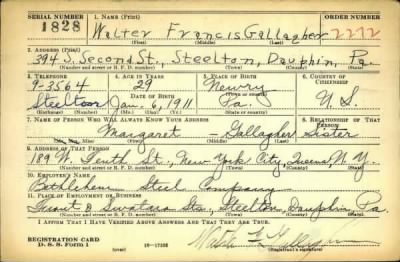 SERIAL NUMBER 1. NAME (Print) ORDER NUMBER
1828 Walter Francis Gallagher 2272
(First) (Middle) (Last)
2. ADDRESS (Print)
394 S. Second St., Steelton, Dauphin, Pa.
(Number and street or R. F. D. number) (Town) (County) (State)
3. TELEPHONE 4. AGE IN YEARS 5. PLACE OF BIRTH 6. COUNTRY OF CITIZENSHIP
9-3564 29 Newry
DATE OF BIRTH (Town or county)
Steelton Jan. 6, 1911 Pa. U.S.
(Exchange) (Number) (Mo.) (Day) (Yr.) (State or country)
7. NAME OF PERSON WHO WILL ALWAYS KNOW YOUR ADDRESS 8. RELATIONSHIP OF THAT PERSON
Margaret - Gallagher Sister
(Mr., Mrs., Miss) (First) (Middle) (Last)
9. ADDRESS OF THAT PERSON
189 W. Tenth St., New York City, N.Y.
(Number and street or R. F. D. number) (Town) (County) (State)
10. EMPLOYER'S NAME
Bethlehem Steel Company
11. PLACE OF EMPLOYMENT OR BUSINESS
Front & Swatara Sts., Steelton, Dauphin, Pa.
(Number and street or R. F. D. number) (Town) (County) (State)
I AFFIRM THAT I HAVE VERIFIED ABOVE ANSWERS AND THAT THEY ARE TRUE.
REGISTRATION CARD
D. S. S. Form 1 (over) 16-17105 (Registrant's signature)